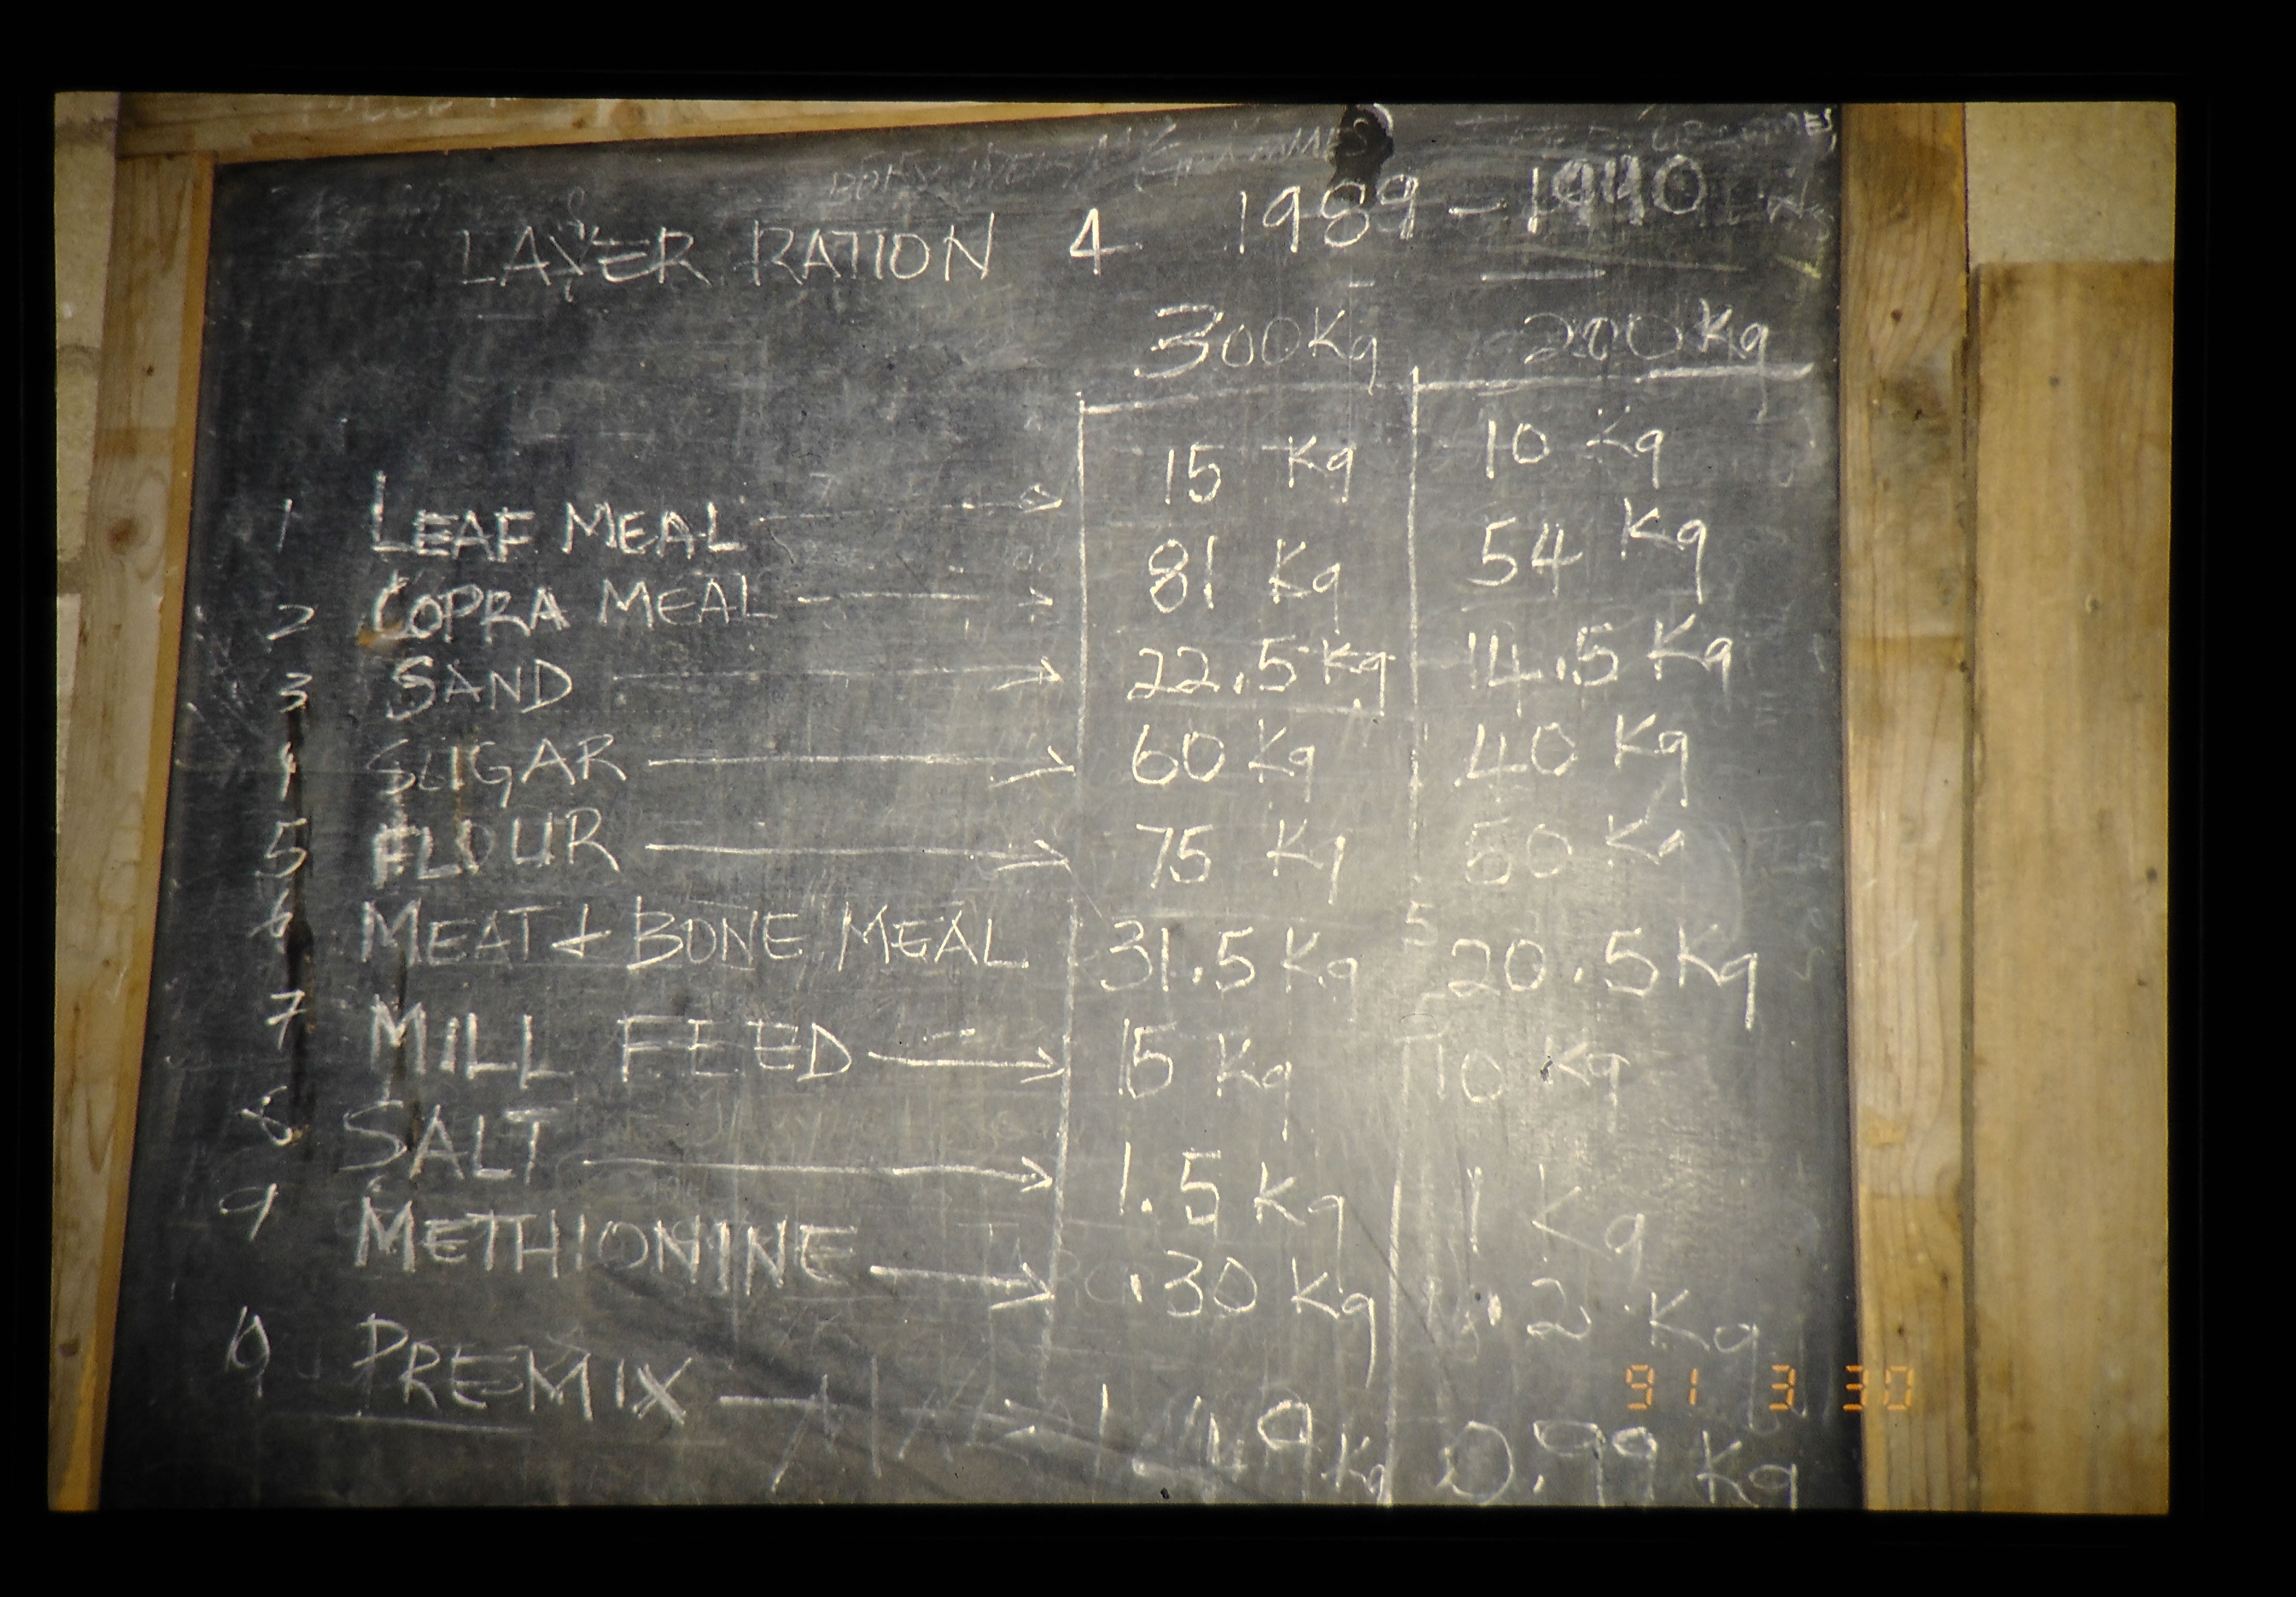 BODY WEIGHT GRAMMES
LAYER RATION 4 1989 - 1990
300Kg 200Kg
1 LEAF MEAL 15 Kg 10 Kg
2 COPRA MEAL 81 Kg 54 Kg
3 SAND 22.5 Kg 14.5 Kg
4 SUGAR 60 Kg 40 Kg
5 FLOUR 75 Kg 50 Kg
6 MEAT & BONE MEAL 31.5 Kg 20.5 Kg
7 MILL FEED 15 Kg 10 Kg
8 SALT 1.5 Kg 1 Kg
9 METHIONINE .30 Kg .2 Kg
10 PREMIX 1.49 Kg 0.99 Kg
91 3 30